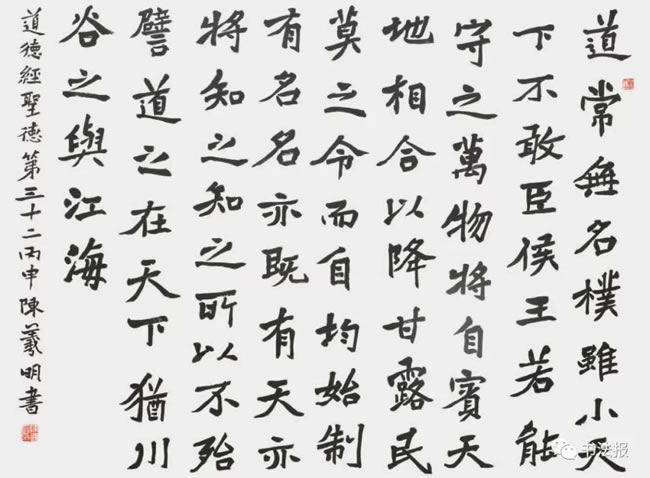 道常無名樸雖小天
下不敢臣侯王若能
守之萬物將自賓天
地相合以降甘露民
莫之令而自均始制
有名名亦既有天亦
將知之知之所以不殆
譬道之在天下猶川
谷之與江海
道德經聖德第三十二丙申陳羲明書
书法报